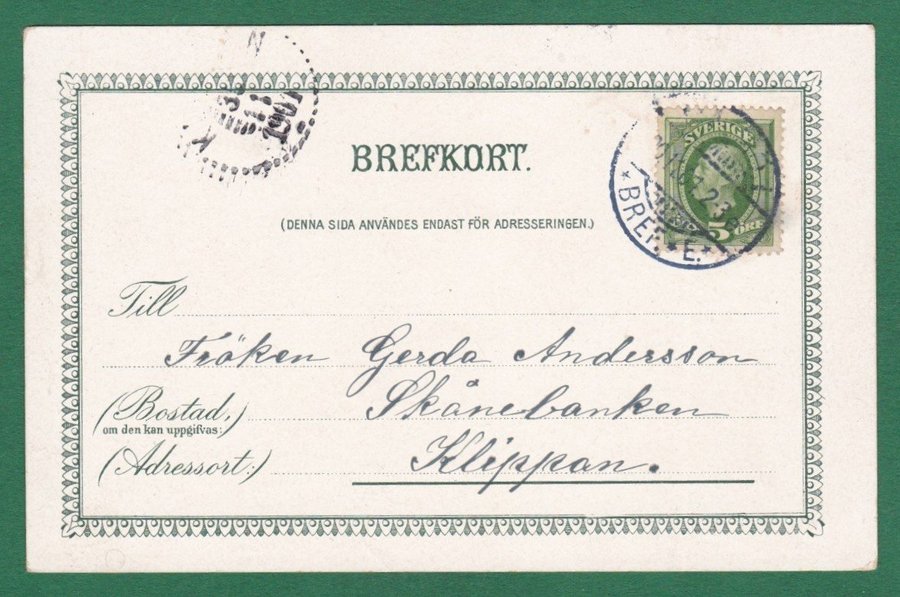 1901
BREFKORT.
SVERIGE
5 ÖRE
* BREF. * E. *
(DENNA SIDA ANVÄNDES ENDAST FÖR ADRESSERINGEN.)
Till
Fröken Gerda Andersson
(Bostad,) Skånebanken
om den kan uppgifvas:
(Adressort:) Klippan.